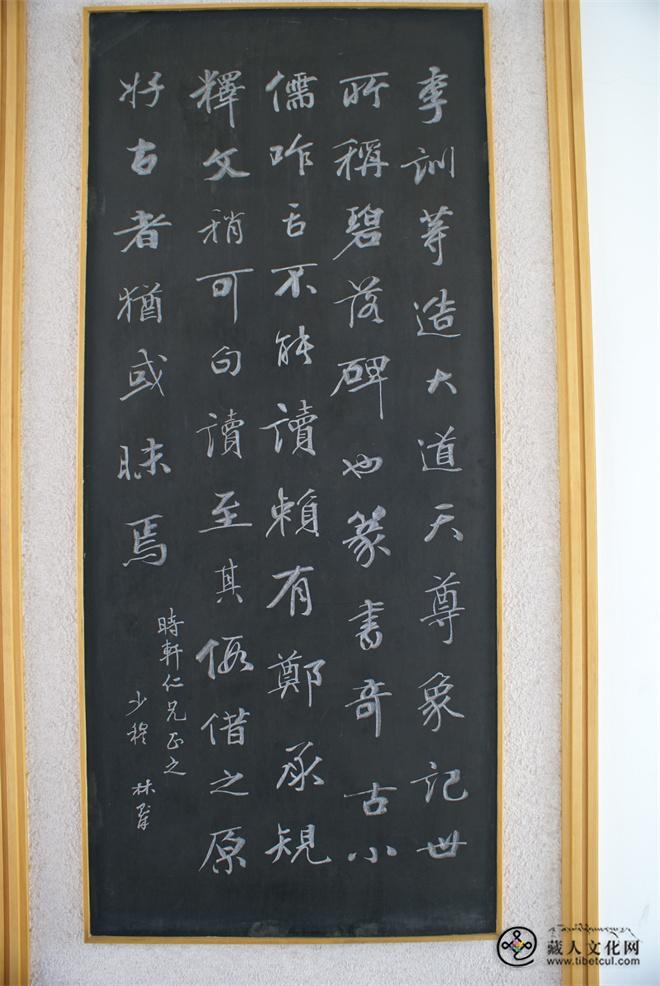 李訓等造大道天尊象記世
所稱碧落碑也篆書奇古小
儒咋舌不能讀賴有鄭承規
釋文稍可句讀至其假借之原
好古者猶或昧焉
時軒仁兄正之
少穆 林則徐
藏人文化网
www.tibetcul.com